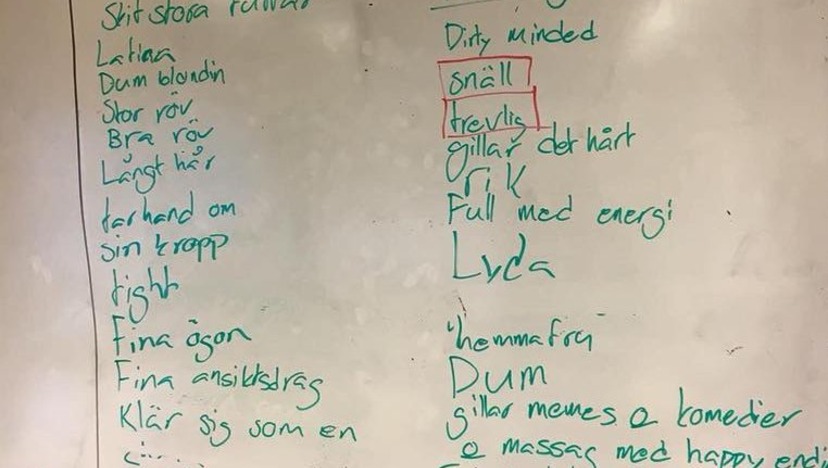 Skit stora
Latina
Dum blondin
Stor röv
Bra röv
Långt hår
tar hand om
sin kropp
tight
Fina ögon
Fina ansiktsdrag
Klär sig som en
Dirty minded
snäll
trevlig
gillar det hårt
rik
Full med energi
Lyda
"hemmafru
Dum
gillar memes o komedier
o massag med happy endi